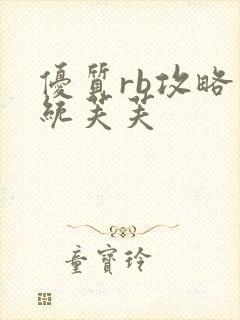 優質rb攻略
統芙芙
童寶玲